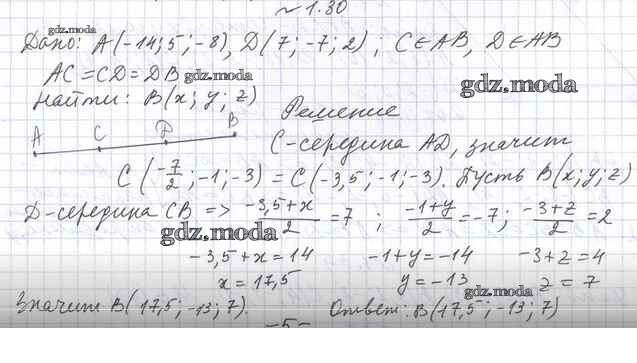 № 1.30
gdz.moda
Дано: A(-14; 5; -8), D(7; -7; 2); C∈AB, D∈AB
AC = CD = DB gdz.moda
gdz.moda
Найти: B(x; y; z)
Решение
A C D B
C-середина AD, значит
C(-7/2; -1; -3) = C(-3,5; -1; -3). Пусть B(x; y; z)
D-середина CB => (-3,5+x)/2 = 7 ; (-1+y)/2 = -7; (-3+z)/2 = 2
gdz.moda
-3,5+x = 14 -1+y = -14 -3+z = 4
x = 17,5 y = -13 z = 7
gdz.moda
Значит B(17,5; -13; 7). Ответ: B(17,5; -13; 7)
-5-